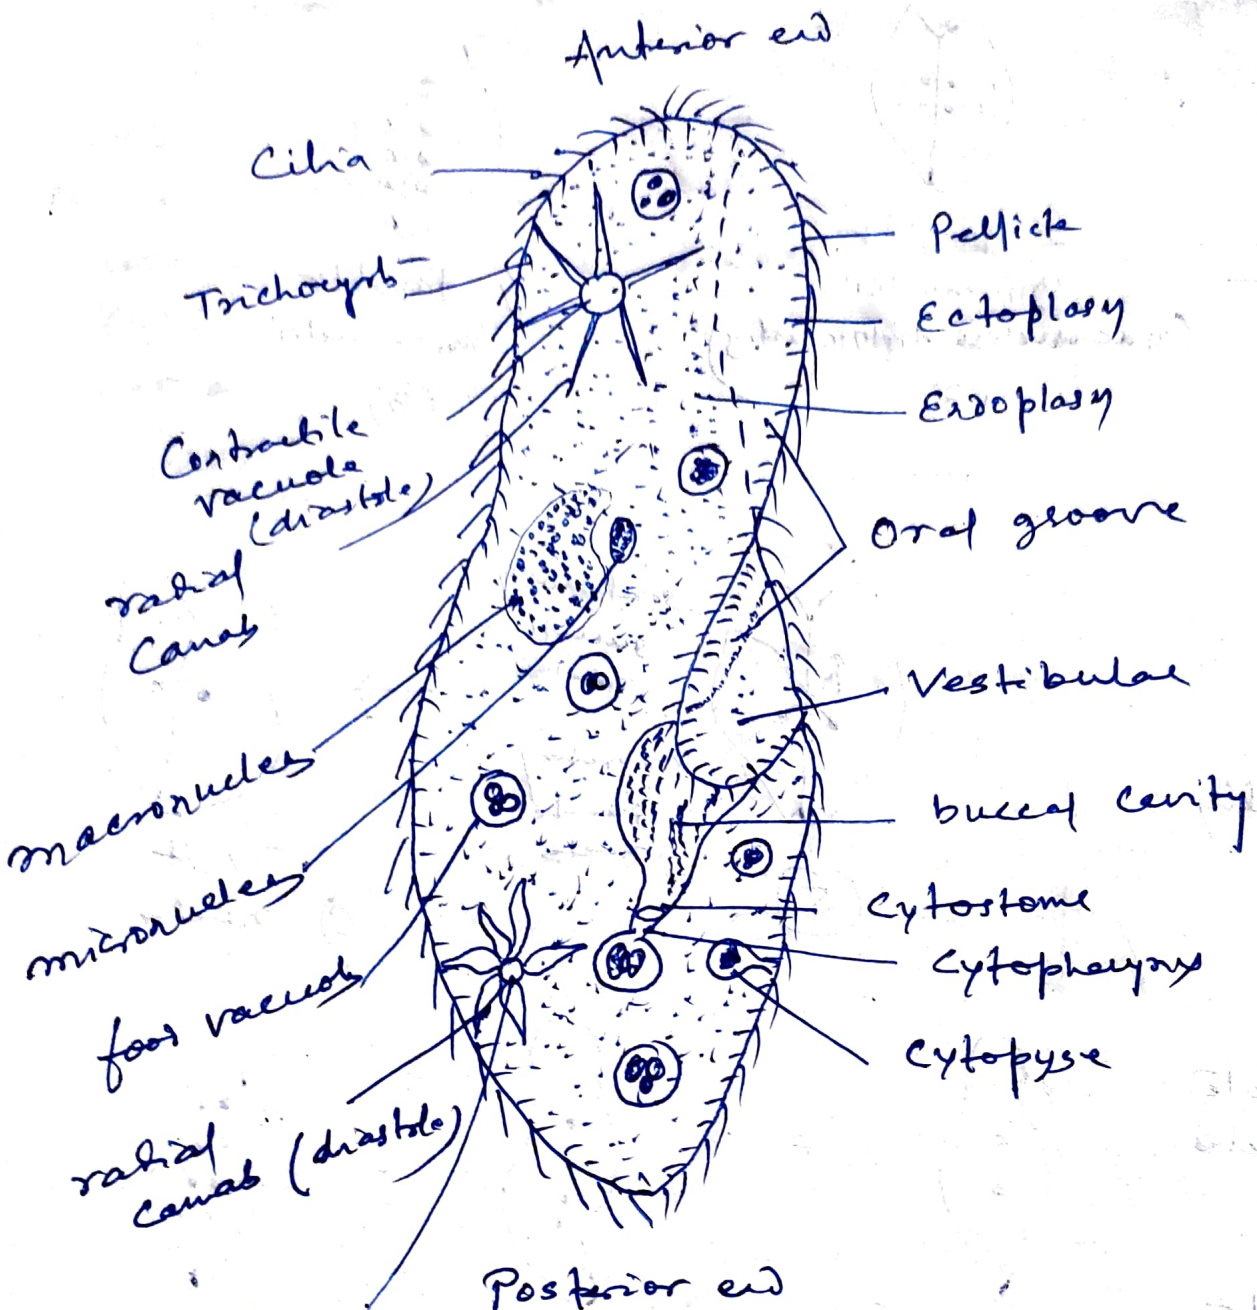 Anterior end
Cilia
Trichocysts
Contractile
vacuole
(diastole)
radial
Canals
macronucleus
micronucleus
food vacuole
radial
canals (diastole)
Pellicle
Ectoplasm
Endoplasm
Oral groove
Vestibulae
buccal cavity
Cytostome
Cytopharynx
Cytopyge
Posterior end